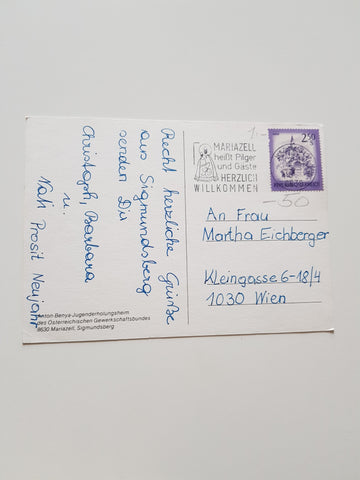 Recht herzliche Grüße
aus Sigmundsberg
senden Dir
Christoph, Barbara
u.
Nach Prosit Neujahr
Anton-Benya-Jugenderholungsheim
des Österreichischen Gewerkschaftsbundes
8630 Mariazell, Sigmundsberg
MARIAZELL
heißt Pilger
und Gäste
HERZLICH
WILLKOMMEN
250
REPUBLIK ÖSTERREICH
1.-
-50
An Frau
Martha Eichberger
Kleingasse 6-18/4
1030 Wien